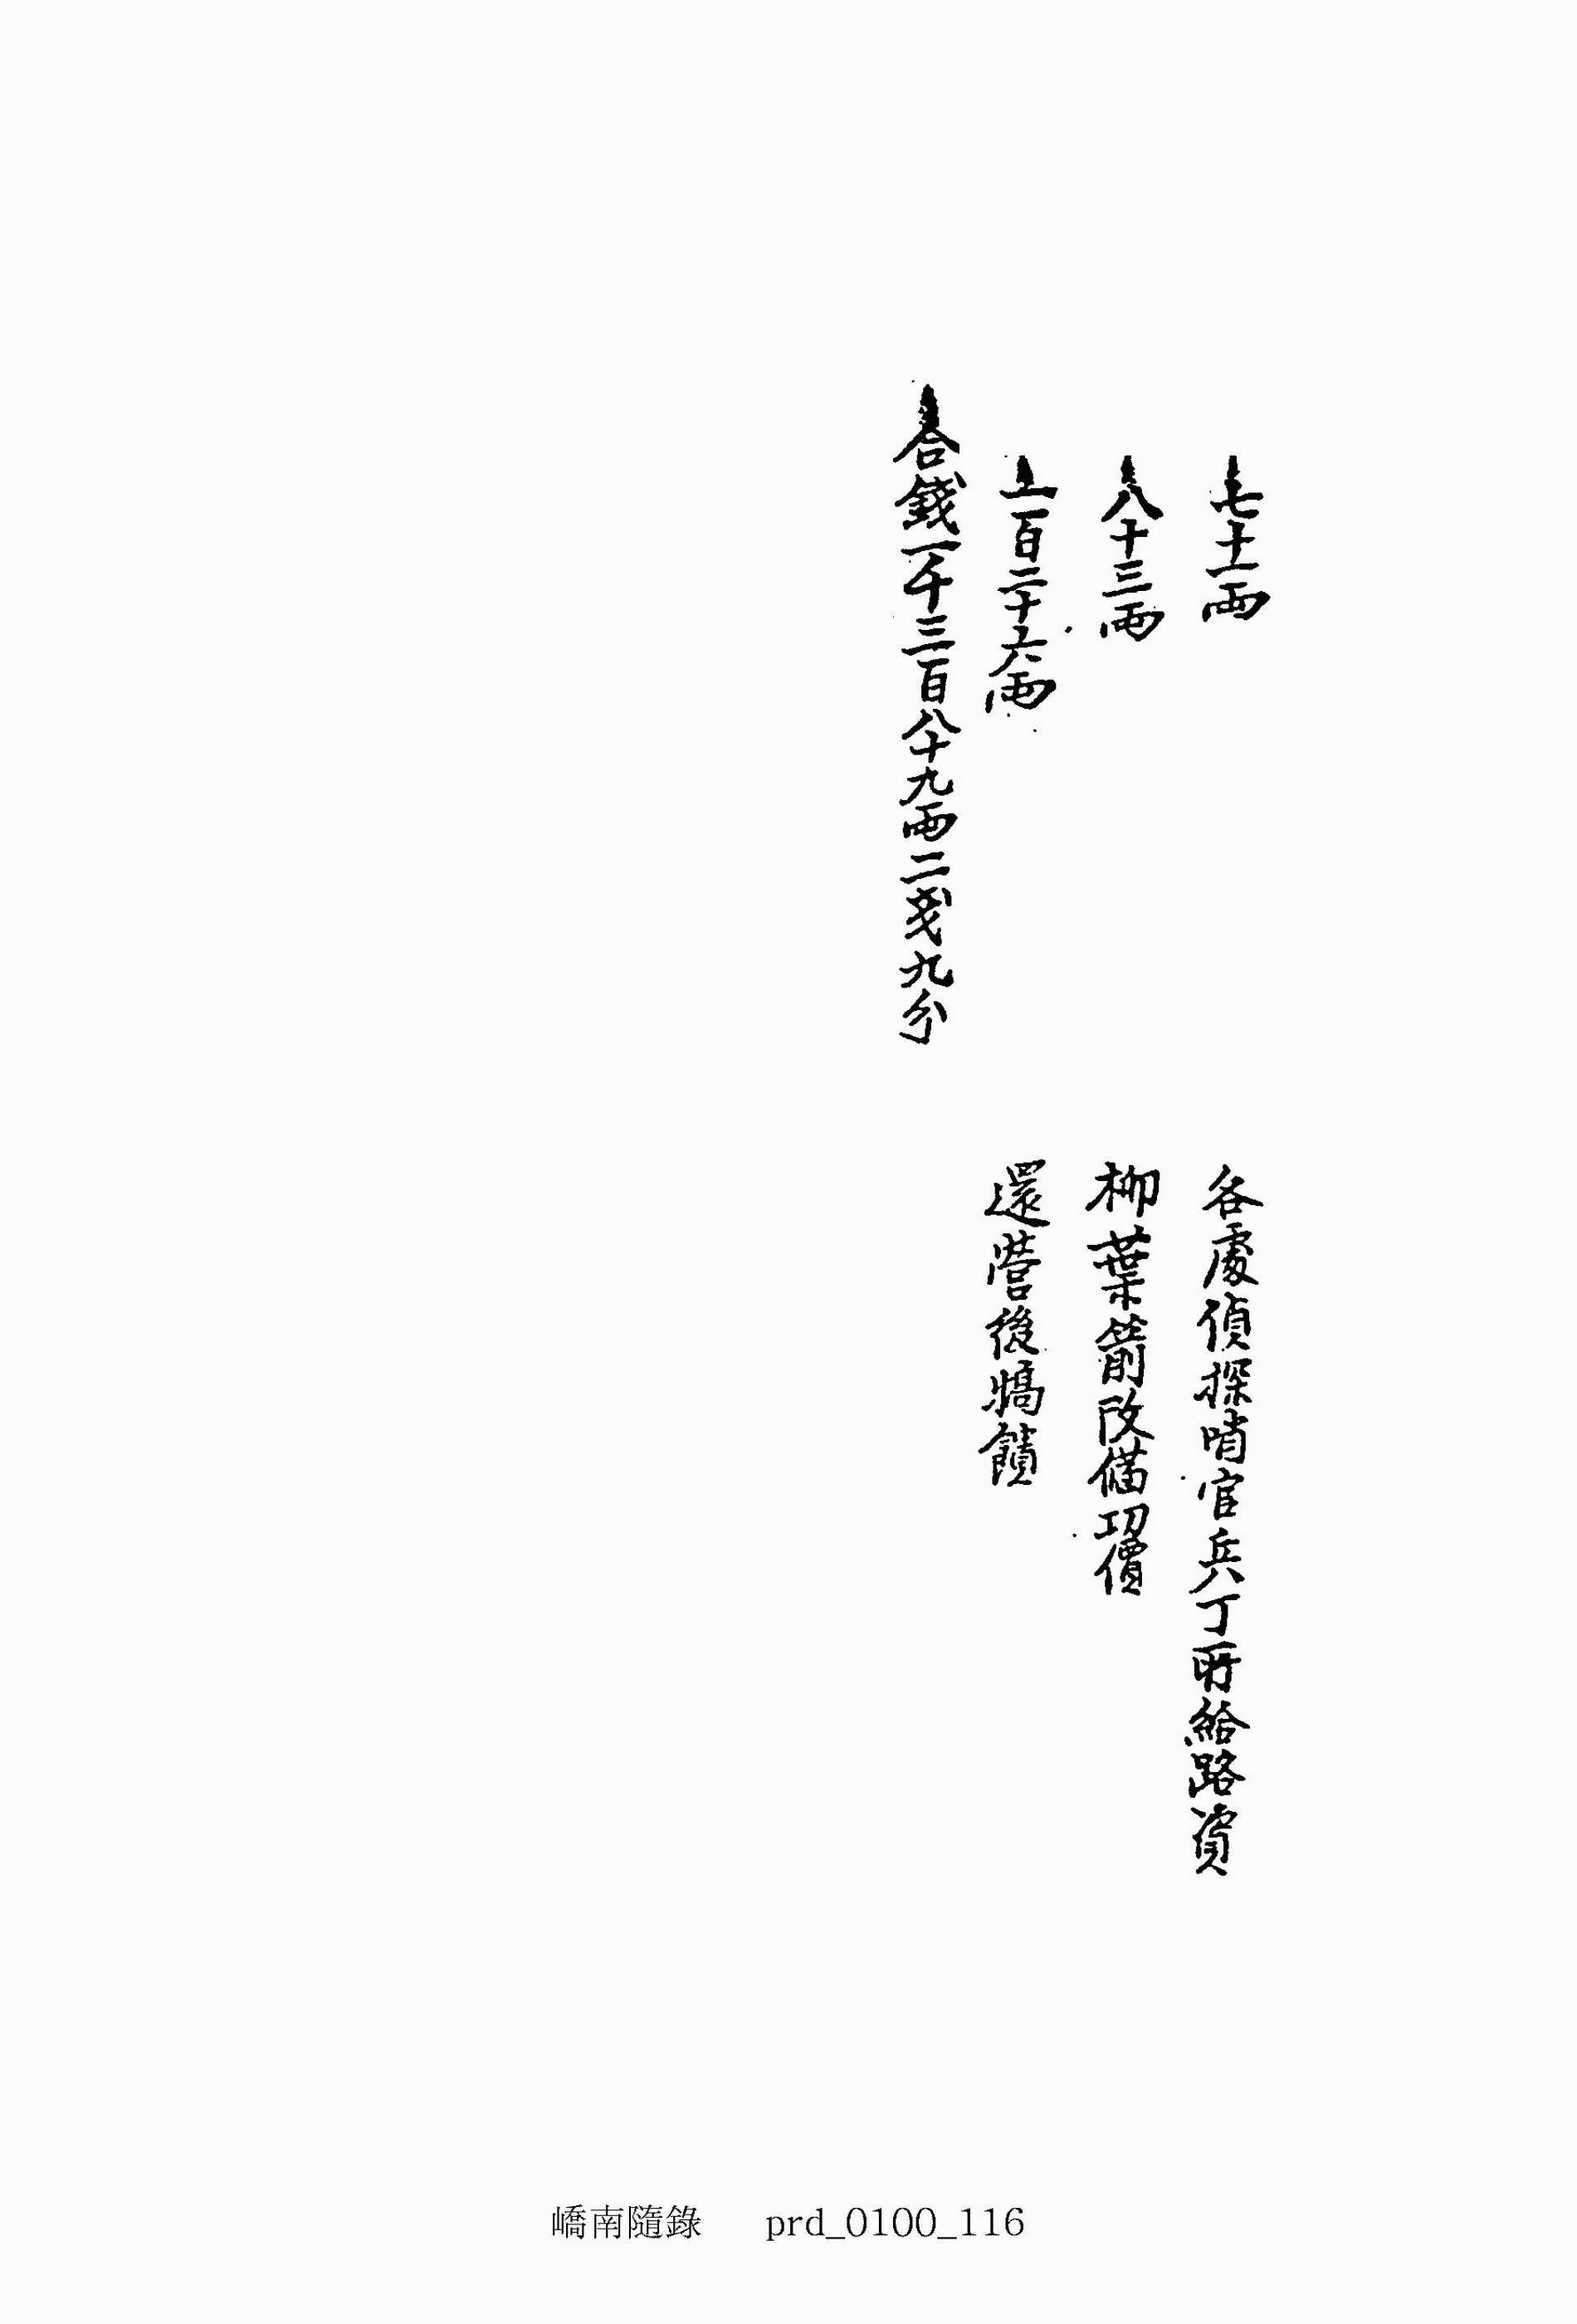 七十一兩 各處偵探哨官兵丁所給路資
八十三兩 柳葉箭改備功價
一百二十六兩 還營後犒饋
合錢一千三百八十九兩二戔九分
嶠南隨錄 prd_0100_116